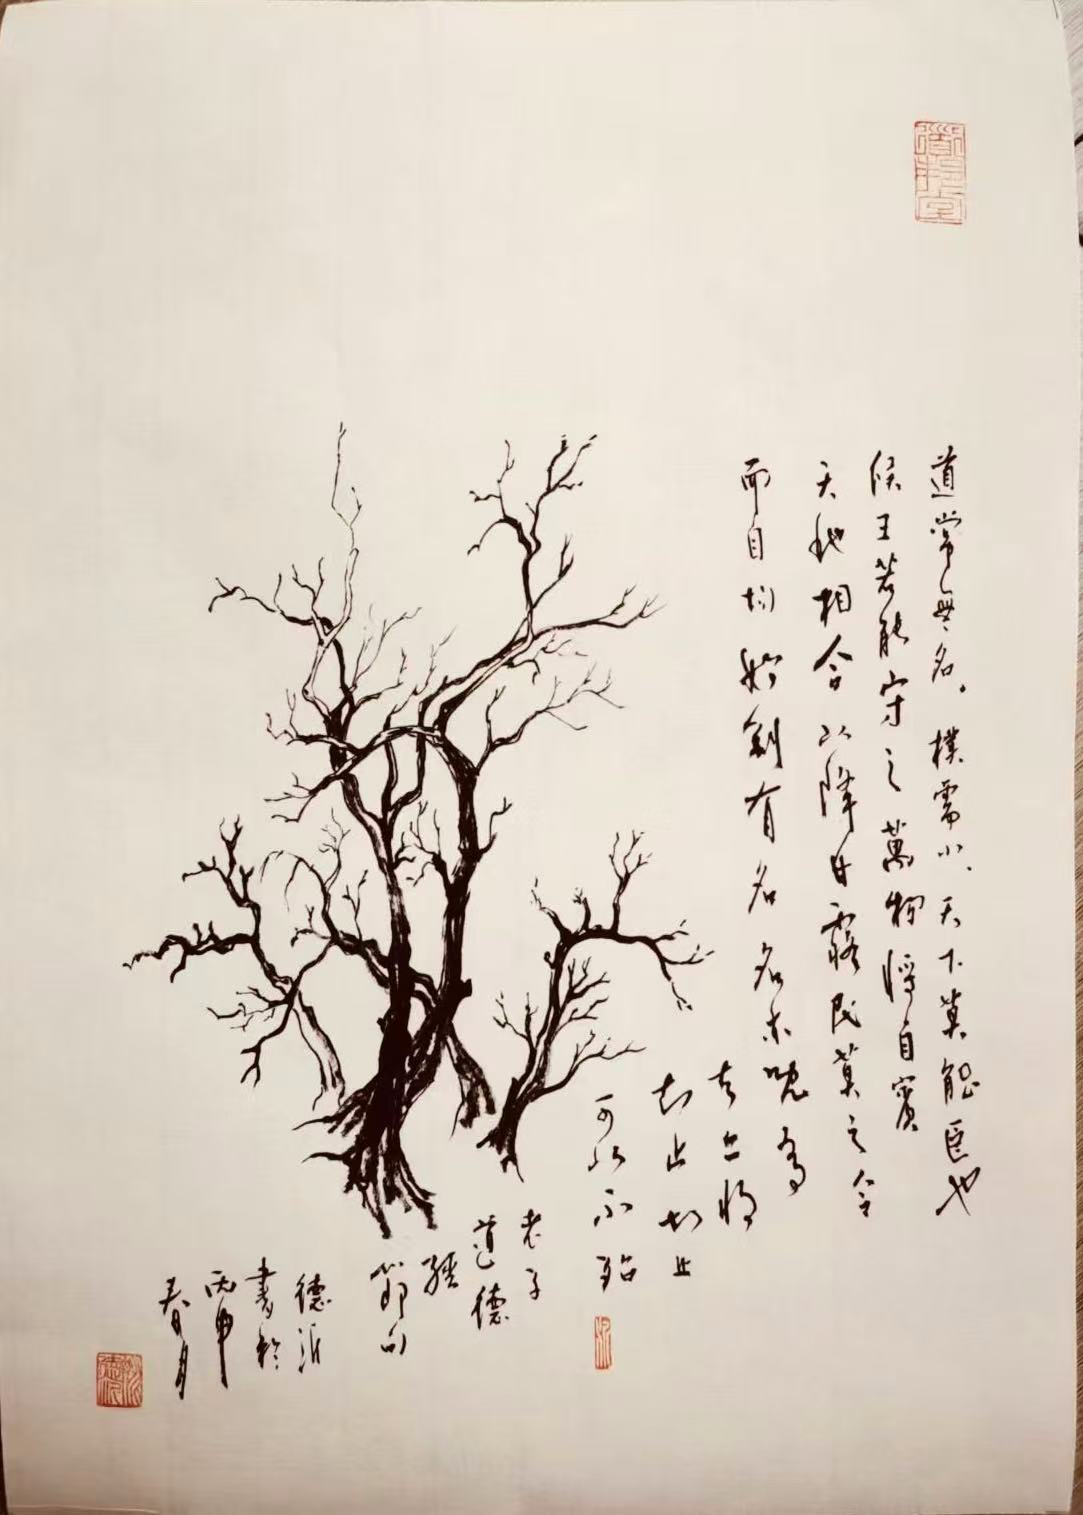 道常無名。樸雖小、天下莫能臣也
侯王若能守之萬物將自賓
天地相合以降甘露民莫之令
而自均始制有名名亦既有
夫亦將
知止知止
可以不殆
老子
道德
經
節句
德沂
書於
丙申
春月